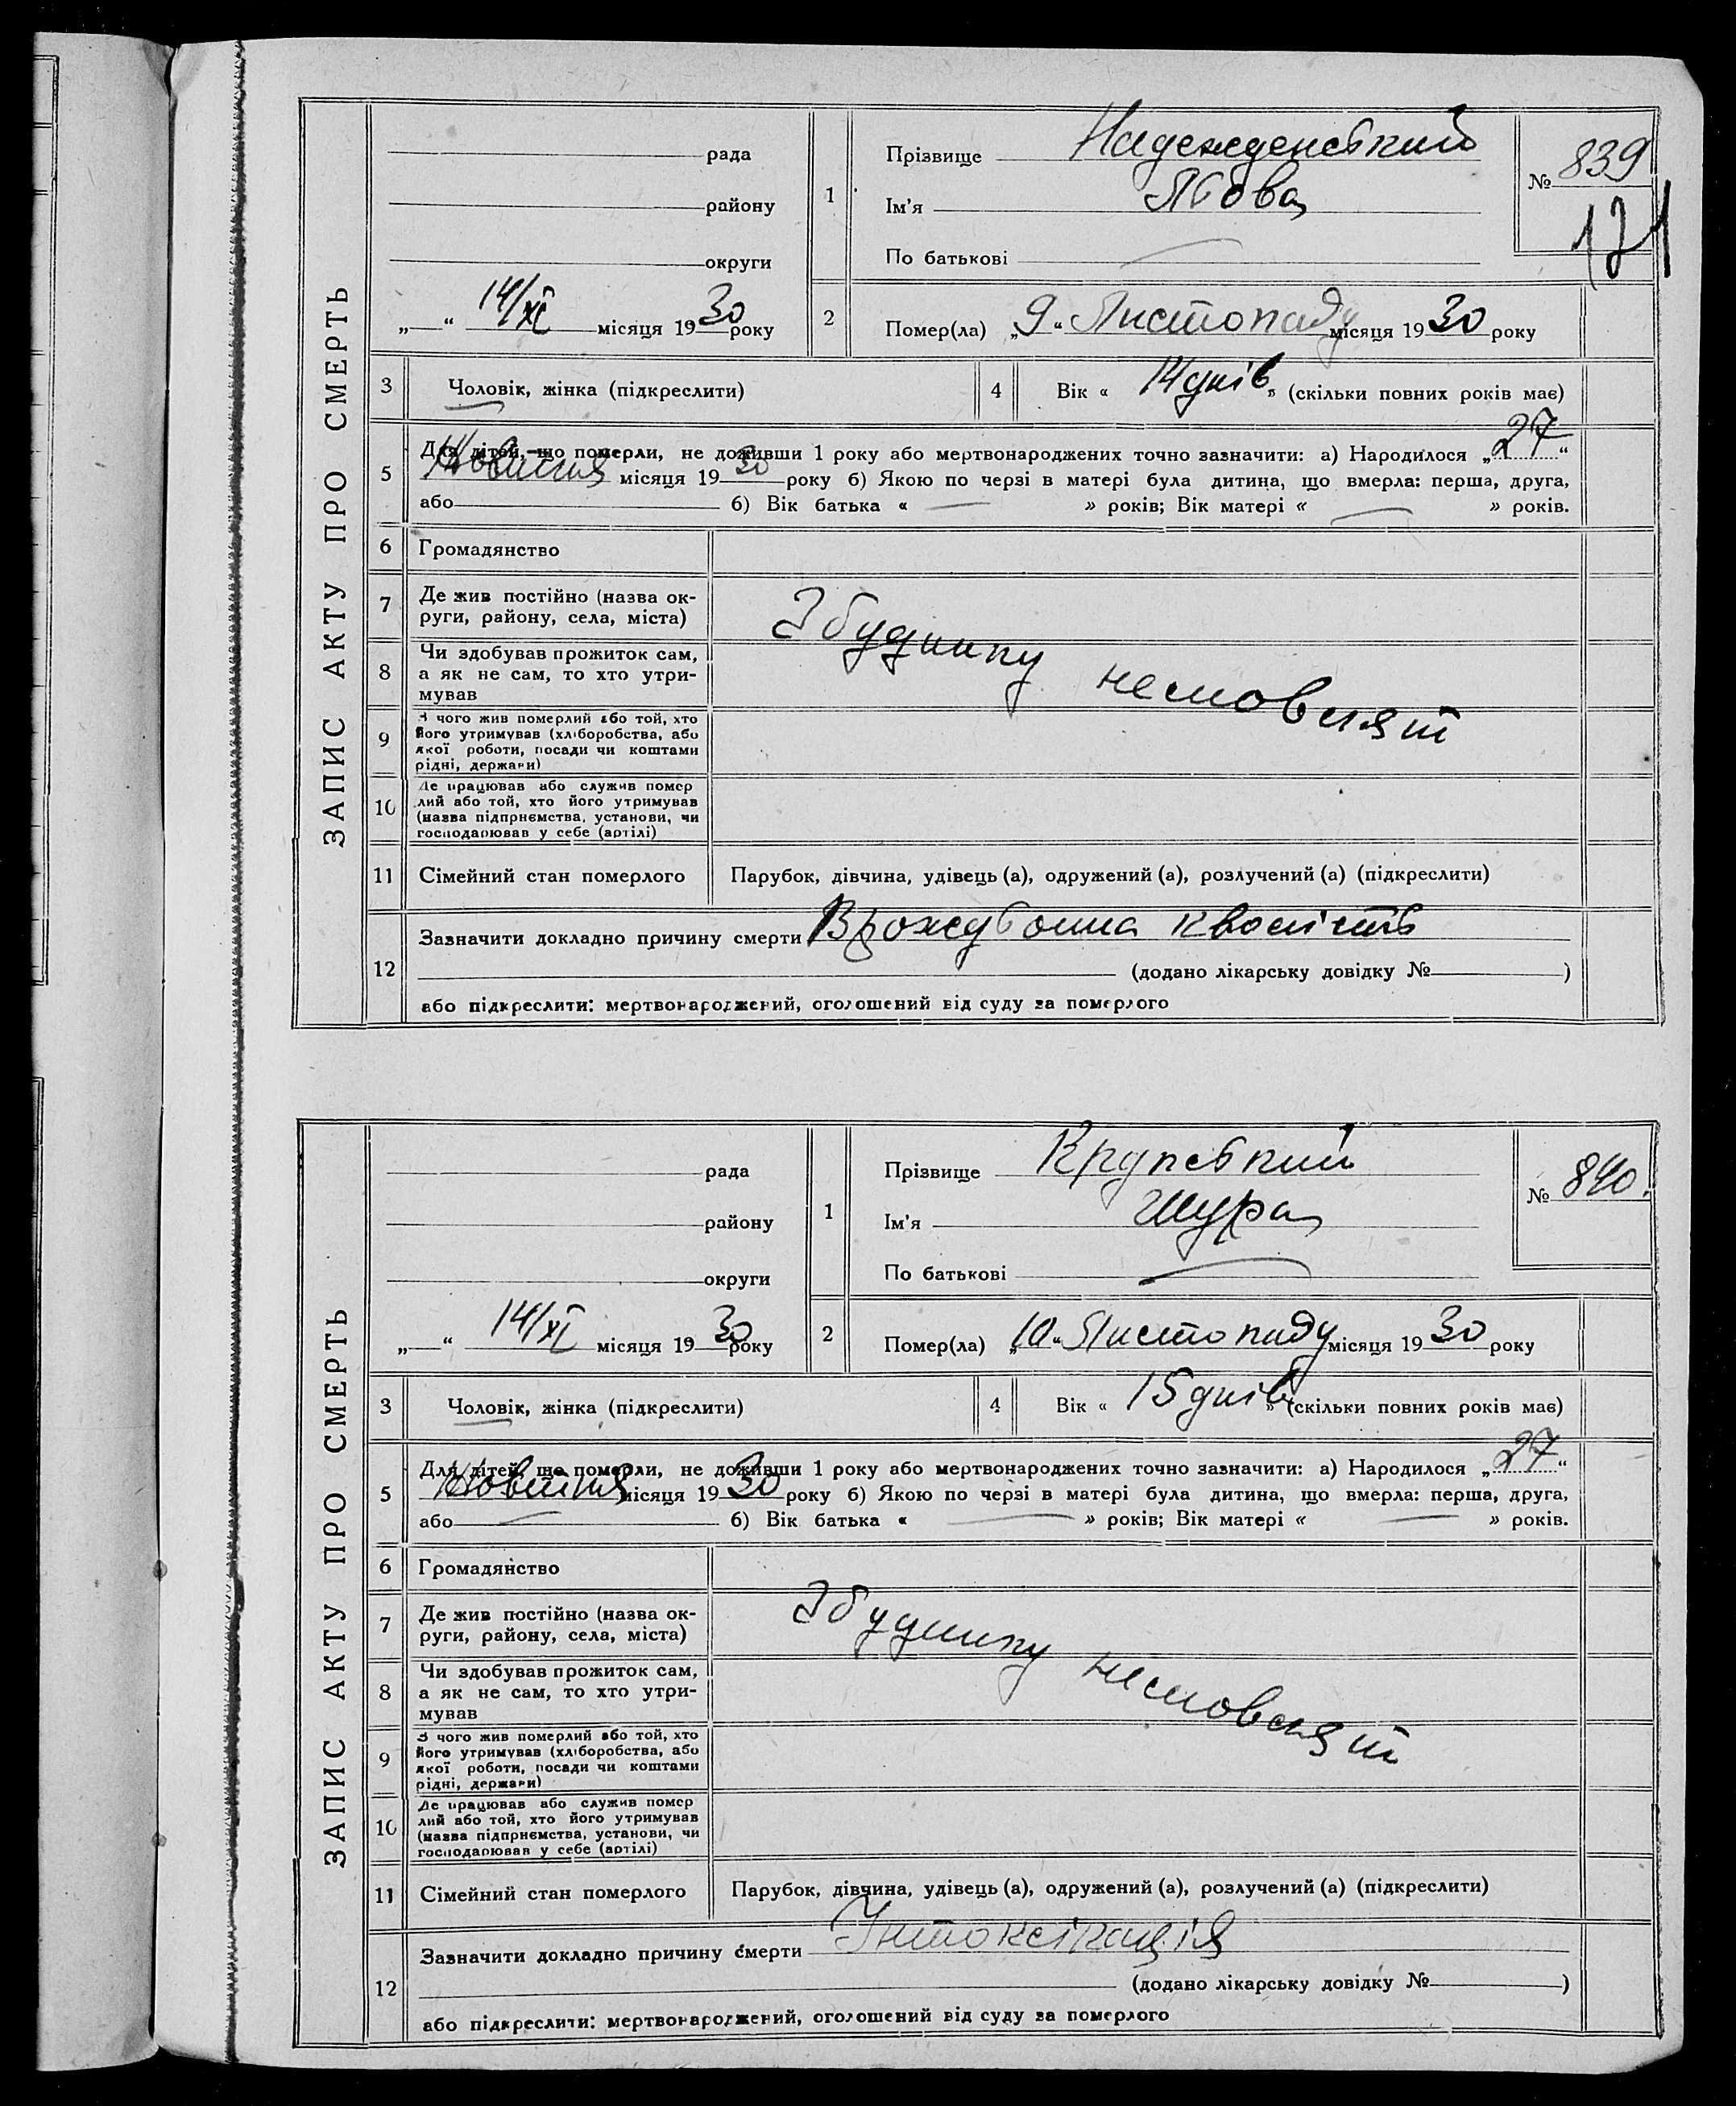 ЗАПИС АКТУ ПРО СМЕРТЬ
рада
району
округи
„ “ 14/XI місяця 1930 року
1
Прізвище Надежденський
Ім'я Льова
По батькові
№ 839
121
2
Помер(ла) „9“ Листопаду місяця 1930 року
3
Чоловік, жінка (підкреслити)
4
Вік « 14 днів » (скільки повних років має)
5
Для дітей, що померли, не доживши 1 року або мертвонароджених точно зазначити: а) Народилося „27“
Жовтня місяця 1930 року б) Якою по черзі в матері була дитина, що вмерла: перша, друга,
або б) Вік батька « » років; Вік матері « » років.
6
Громадянство
7
Де жив постійно (назва ок-
руги, району, села, міста)
З будинку немовлят
8
Чи здобував прожиток сам,
а як не сам, то хто утри-
мував
9
З чого жив померлий або той, хто
його утримував (хліборобства, або
якої роботи, посади чи коштами
рідні, держави)
10
Де працював або служив помер
лий або той, хто його утримував
(назва підприємства, установи, чи
господарював у себе (артілі)
11
Сімейний стан померлого
Парубок, дівчина, удівець (а), одружений (а), розлучений (а) (підкреслити)
12
Зазначити докладно причину смерти Врождьонна кволість
(додано лікарську довідку № )
або підкреслити: мертвонароджений, оголошений від суду за померлого
ЗАПИС АКТУ ПРО СМЕРТЬ
рада
району
округи
„ “ 14/XI місяця 1930 року
1
Прізвище Крупський
Ім'я Шура
По батькові
№ 840.
2
Помер(ла) „10“ Листопаду місяця 1930 року
3
Чоловік, жінка (підкреслити)
4
Вік « 15 днів » (скільки повних років має)
5
Для дітей, що померли, не доживши 1 року або мертвонароджених точно зазначити: а) Народилося „27“
Жовтня місяця 1930 року б) Якою по черзі в матері була дитина, що вмерла: перша, друга,
або б) Вік батька « » років; Вік матері « » років.
6
Громадянство
7
Де жив постійно (назва ок-
руги, району, села, міста)
З будинку немовлят
8
Чи здобував прожиток сам,
а як не сам, то хто утри-
мував
9
З чого жив померлий або той, хто
його утримував (хліборобства, або
якої роботи, посади чи коштами
рідні, держави)
10
Де працював або служив помер
лий або той, хто його утримував
(назва підприємства, установи, чи
господарював у себе (артілі)
11
Сімейний стан померлого
Парубок, дівчина, удівець (а), одружений (а), розлучений (а) (підкреслити)
12
Зазначити докладно причину смерти Інтоксікація
(додано лікарську довідку № )
або підкреслити: мертвонароджений, оголошений від суду за померлого